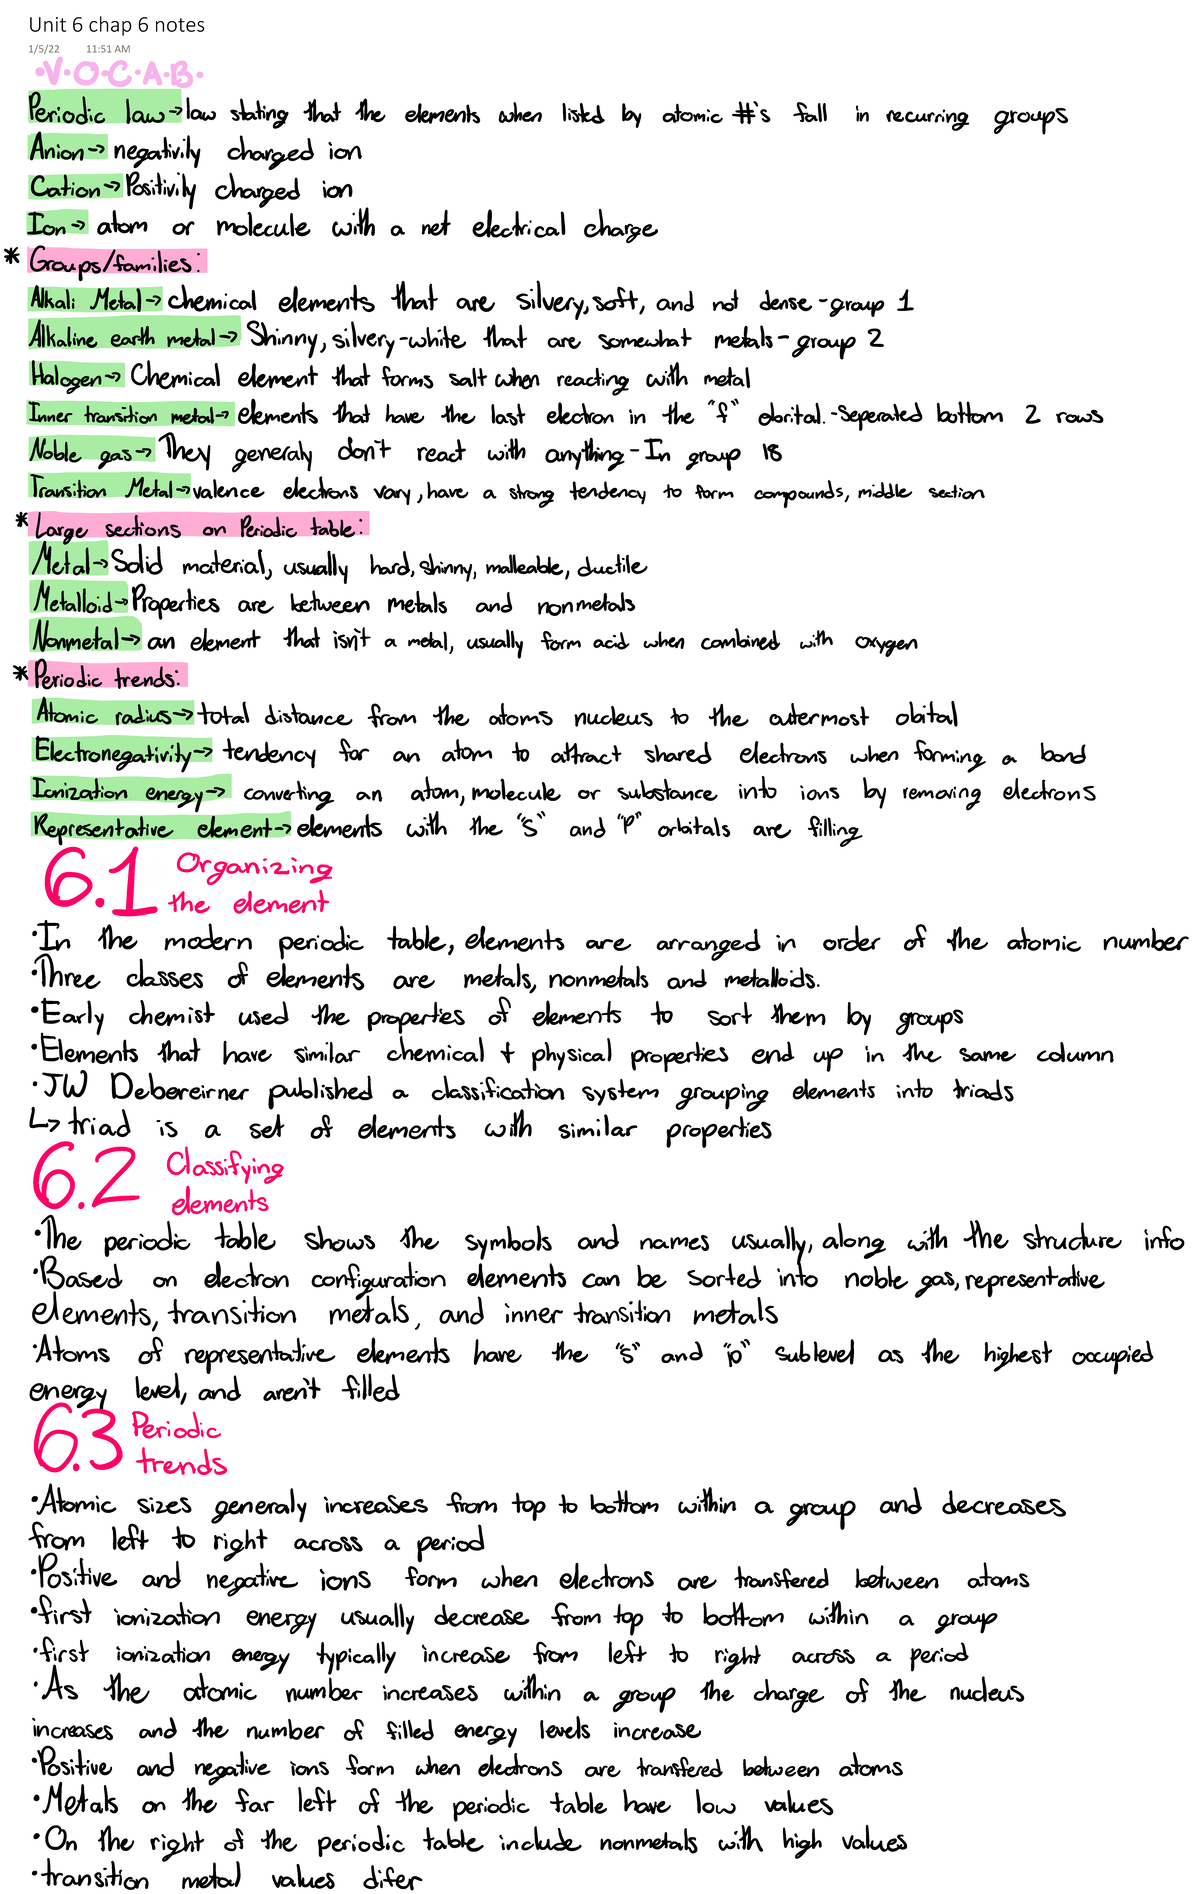 Unit 6 chap 6 notes
1/5/22 11:51 AM
•V•O•C•A•B•
Periodic law→law stating that the elements when listed by atomic #'s fall in recurring groups
Anion→ negativily charged ion
Cation→Positivily charged ion
Ion→ atom or molecule with a net electrical charge
* Groups/families:
Alkali Metal→ chemical elements that are silvery, soft, and not dense -group 1
Alkaline earth metal→ Shinny, silvery-white that are somewhat metals- group 2
Halogen→ Chemical element that forms salt when reacting with metal
Inner transition metal→ elements that have the last electron in the "f" obrital.-Seperated bottom 2 rows
Noble gas→ They generaly don't react with anything-In group 18
Transition Metal→valence electrons vary, have a strong tendency to form compounds, middle section
* Large sections on Periodic table:
Metal→Solid material, usually hard, shinny, malleable, ductile
Metalloid→Properties are between metals and nonmetals
Nonmetal→ an element that isn't a metal, usually form acid when combined with oxygen
* Periodic trends:
Atomic radius→ total distance from the atoms nucleus to the outermost obital
Electronegativity→ tendency for an atom to attract shared electrons when forming a bond
Ionization energy→ converting an atom, molecule or substance into ions by removing electrons
Representative element→ elements with the "S" and "P" orbitals are filling
6.1 Organizing
the element
•In the modern periodic table, elements are arranged in order of the atomic number
•Three classes of elements are metals, nonmetals and metalloids.
•Early chemist used the properties of elements to sort them by groups
•Elements that have similar chemical + physical properties end up in the same column
•JW Debereirner published a classification system grouping elements into triads
↳ triad is a set of elements with similar properties
6.2 Classifying
elements
•The periodic table shows the symbols and names usually, along with the structure info
•Based on electron configuration elements can be sorted into noble gas, representative
elements, transition metals, and inner transition metals
•Atoms of representative elements have the "s" and "p" sublevel as the highest occupied
energy level, and aren't filled
6.3 Periodic
trends
•Atomic sizes generaly increases from top to bottom within a group and decreases
from left to right across a period
•Positive and negative ions form when electrons are transfered between atoms
•first ionization energy usually decrease from top to bottom within a group
•first ionization energy typically increase from left to right across a period
•As the atomic number increases within a group the charge of the nucleus
increases and the number of filled energy levels increase
•Positive and negative ions form when electrons are transfered between atoms
•Metals on the far left of the periodic table have low values
•On the right of the periodic table include nonmetals with high values
•transition metal values difer